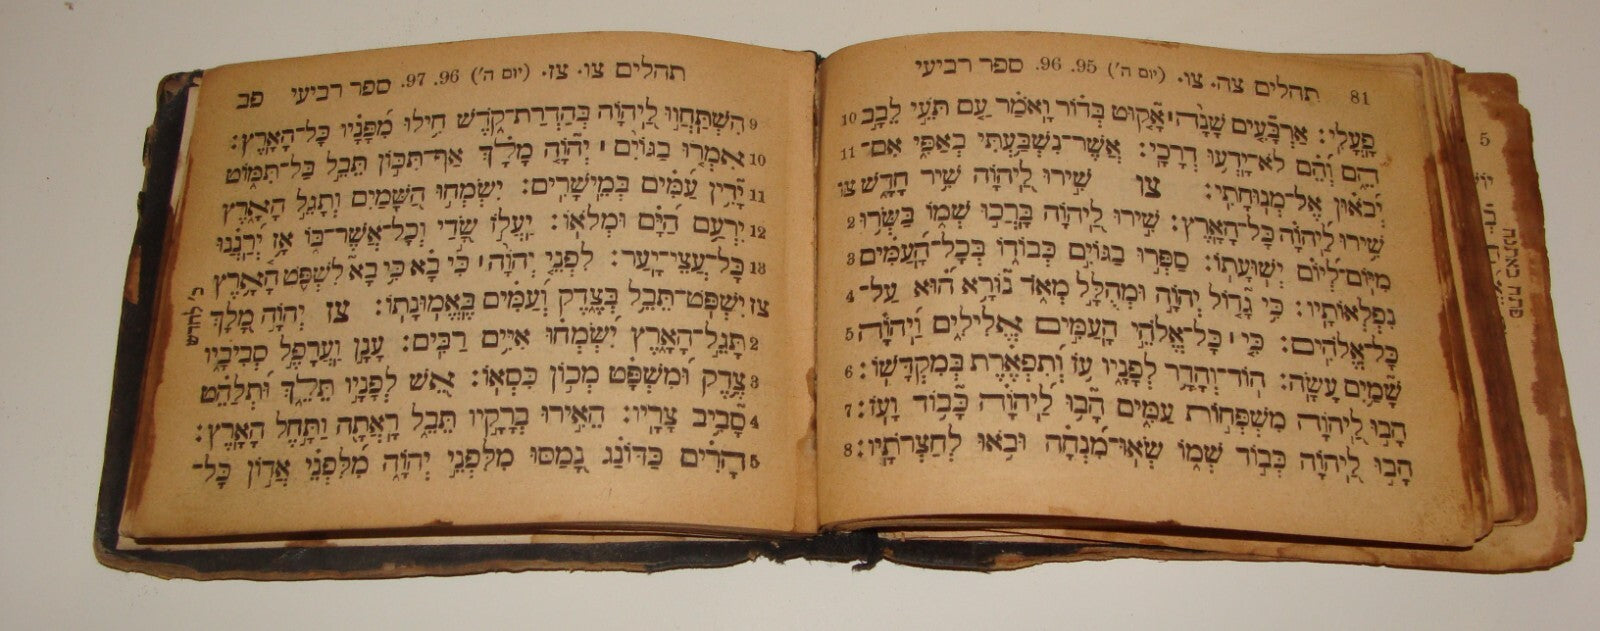 81 תהלים צה. צו. (יום ה׳) 95. 96. ספר רביעי
פָּעֳלִי׃ אַרְבָּעִ֤ים שָׁנָ֨ה ׀ אָ֘ק֤וּט בְּד֗וֹר וָאֹמַ֗ר עַ֤ם תֹּעֵ֣י לֵבָ֣ב 10
הֵ֑ם וְ֝הֵ֗ם לֹא־יָדְע֥וּ דְרָכָֽי׃ אֲשֶׁר־נִשְׁבַּ֥עְתִּי בְאַפִּ֑י אִם־ 11
יְ֝בֹא֗וּן אֶל־מְנוּחָתִֽי׃ צו שִׁ֣ירוּ לַ֭יהֹוָה שִׁ֣יר חָדָ֑שׁ צו
שִׁ֥ירוּ לַ֝יהֹוָ֗ה כׇּל־הָאָֽרֶץ׃ שִׁ֣ירוּ לַ֭יהֹוָה בָּרְכ֣וּ שְׁמ֑וֹ בַּשְּׂר֥וּ 2
מִיּֽוֹם־לְ֝י֗וֹם יְשׁוּעָתֽוֹ׃ סַפְּר֣וּ בַגּוֹיִ֣ם כְּבוֹד֑וֹ בְּכׇל־הָ֝עַמִּ֗ים 3
נִפְלְאוֹתָֽיו׃ כִּ֥י גָ֘ד֤וֹל יְהֹוָ֣ה וּמְהֻלָּ֣ל מְאֹ֑ד נוֹרָ֥א ה֝֗וּא עַל־ 4
כׇּל־אֱלֹהִֽים׃ כִּ֤י ׀ כׇּל־אֱלֹהֵ֣י הָעַמִּ֣ים אֱלִילִ֑ים וַ֝יהֹוָ֗ה 5
שָׁמַ֥יִם עָשָֽׂה׃ הוֹד־וְהָדָ֥ר לְפָנָ֑יו עֹ֥ז וְ֝תִפְאֶ֗רֶת בְּמִקְדָּשֽׁוֹ׃ 6
הָב֣וּ לַ֭יהֹוָה מִשְׁפְּח֣וֹת עַמִּ֑ים הָב֥וּ לַ֝יהֹוָ֗ה כָּב֥וֹד וָעֹֽז׃ 7
הָב֣וּ לַ֭יהֹוָה כְּב֣וֹד שְׁמ֑וֹ שְׂאֽוּ־מִ֝נְחָ֗ה וּבֹ֥אוּ לְחַצְרוֹתָֽיו׃ 8
תהלים צו. צז. (יום ה׳) 96. 97. ספר רביעי פב
9 הִשְׁתַּחֲו֣וּ לַ֭יהֹוָה בְּהַדְרַת־קֹ֑דֶשׁ חִ֥ילוּ מִ֝פָּנָ֗יו כׇּל־הָאָֽרֶץ׃
10 אִמְר֤וּ בַגּוֹיִ֨ם ׀ יְ֘הֹוָ֤ה מָלָ֗ךְ אַף־תִּכּ֣וֹן תֵּ֭בֵל בַּל־תִּמּ֑וֹט
11 יָדִ֥ין עַ֝מִּ֗ים בְּמֵישָׁרִֽים׃ יִשְׂמְח֣וּ הַ֭שָּׁמַיִם וְתָגֵ֣ל הָאָ֑רֶץ
12 יִֽרְעַ֥ם הַ֝יָּ֗ם וּמְלֹאֽוֹ׃ יַעֲלֹ֣ז שָׂ֭דַי וְכׇל־אֲשֶׁר־בּ֑וֹ אָ֥ז יְ֝רַנְּנ֗וּ
13 כׇּל־עֲצֵי־יָֽעַר׃ לִפְנֵ֤י יְהֹוָ֨ה ׀ כִּ֬י בָ֗א כִּ֥י בָא֮ לִשְׁפֹּ֢ט הָ֫אָ֥רֶץ
צז יִשְׁפֹּֽט־תֵּבֵ֥ל בְּצֶ֑דֶק וְ֝עַמִּ֗ים בֶּאֱמוּנָתֽוֹ׃ צז יְהֹוָ֣ה מָ֭לָךְ
כ׳ לחדש
2 תָּגֵ֣ל הָאָ֑רֶץ יִ֝שְׂמְח֗וּ אִיִּ֥ים רַבִּֽים׃ עָנָ֣ן וַעֲרָפֶ֣ל סְבִיבָ֑יו
3 צֶ֥דֶק וּ֝מִשְׁפָּ֗ט מְכ֣וֹן כִּסְאֽוֹ׃ אֵ֭שׁ לְפָנָ֣יו תֵּלֵ֑ךְ וּתְלַהֵ֖ט
4 סָבִ֣יב צָרָֽיו׃ הֵאִ֣ירוּ בְרָקָ֣יו תֵּבֵ֑ל רָאֲתָ֖ה וַתָּחֵ֣ל הָאָֽרֶץ׃
5 הָרִ֗ים כַּדּוֹנַ֗ג נָ֭מַסּוּ מִלִּפְנֵ֣י יְהֹוָ֑ה מִ֝לִּפְנֵ֗י אֲד֣וֹן כׇּל־
5